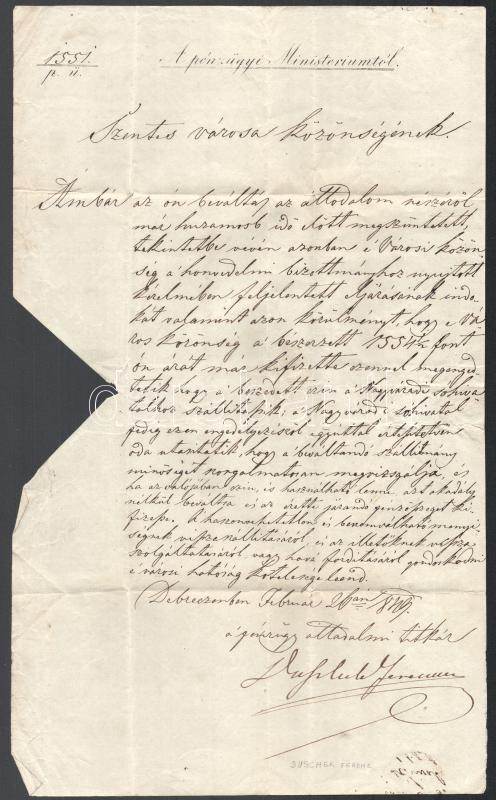 1551.
p. ü.
A pénzügyi Ministeriumtól.
Szentes városa közönségének.
Ámbár az ón beváltás az álladalom részéről
már huzamosb idő előtt megszüntetett,
tekintetbe vévén azonban é Városi közön
ség a honvédelmi bizottmányhoz nyujtott
kérelmében feljelentett eljárásának indo
kát valamint azon körülményt, hogy e Vá
ros közönség a beszerzett 1554½ font
ón árát már kifizette ezennel megenged
tetik hogy a beszedett ón a Nagyváradi
szállittassék; a Nagyváradi
pedig ezen engedélyezésről egyuttal értesítetvén
oda utasíttatik, hogy a beváltandó szállitmány
minőségét szorgalmatosan megvizsgálja, és
ha az valójában ón, és használható lenne, azt akadály
nélkül beváltsa és az érette járandó pénzösszeget ki
fizesse. A hasznavehetetlen és
ségnek visszaállításáról, és az illetőknek vissza
szolgáltatásáról vagy hová fordításáról gondoskodni
e városi hatóság kötelessége leend.
Debreczenben Február 26án 1849.
a pénzügy álladalmi titkár
Duschek Ferencz
DUSCHEK FERENC
darabanth